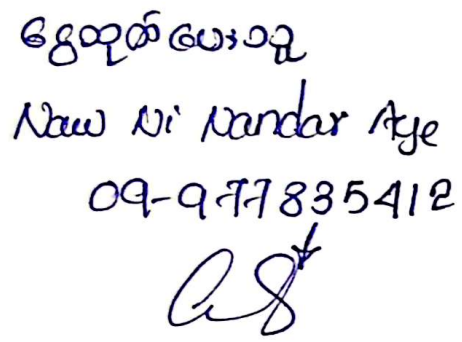 ငွေထုတ်ပေးသူ
Naw Ni Nandar Aye
09-977835412